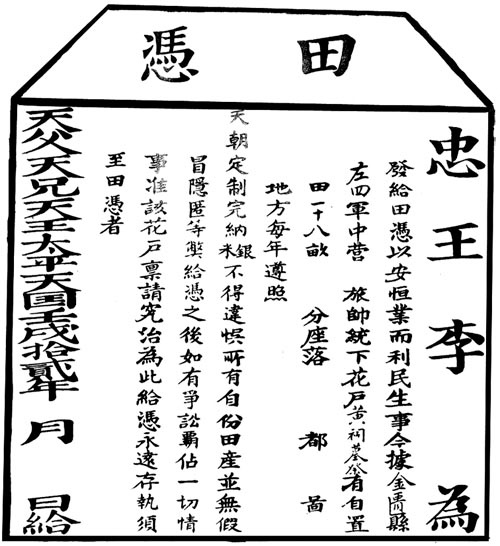 田憑
忠王李為
發給田憑以安恒業而利民生事今據金匱縣
左四軍中营 旅帥統下花戶黃祠墓祭有自置
田一十八畝 分座落 都 啚
地方每年遵照
天朝定制完納銀米不得違悮所有自份田產並無假
冒隱匿等獘給憑之後如有爭訟霸佔一切情
事准該花戶禀請究治為此給憑永遠存執須
至田憑者
天父天兄天王太平天囯壬戌拾貳年 月 日給